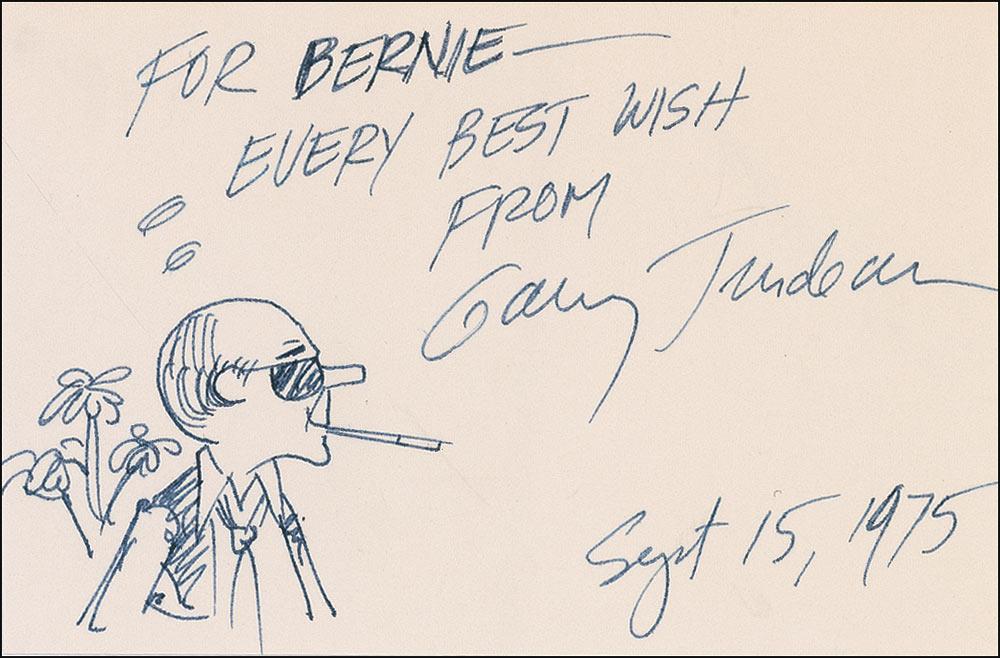 FOR BERNIE—
EVERY BEST WISH
FROM
Garry Trudeau
Sept 15, 1975